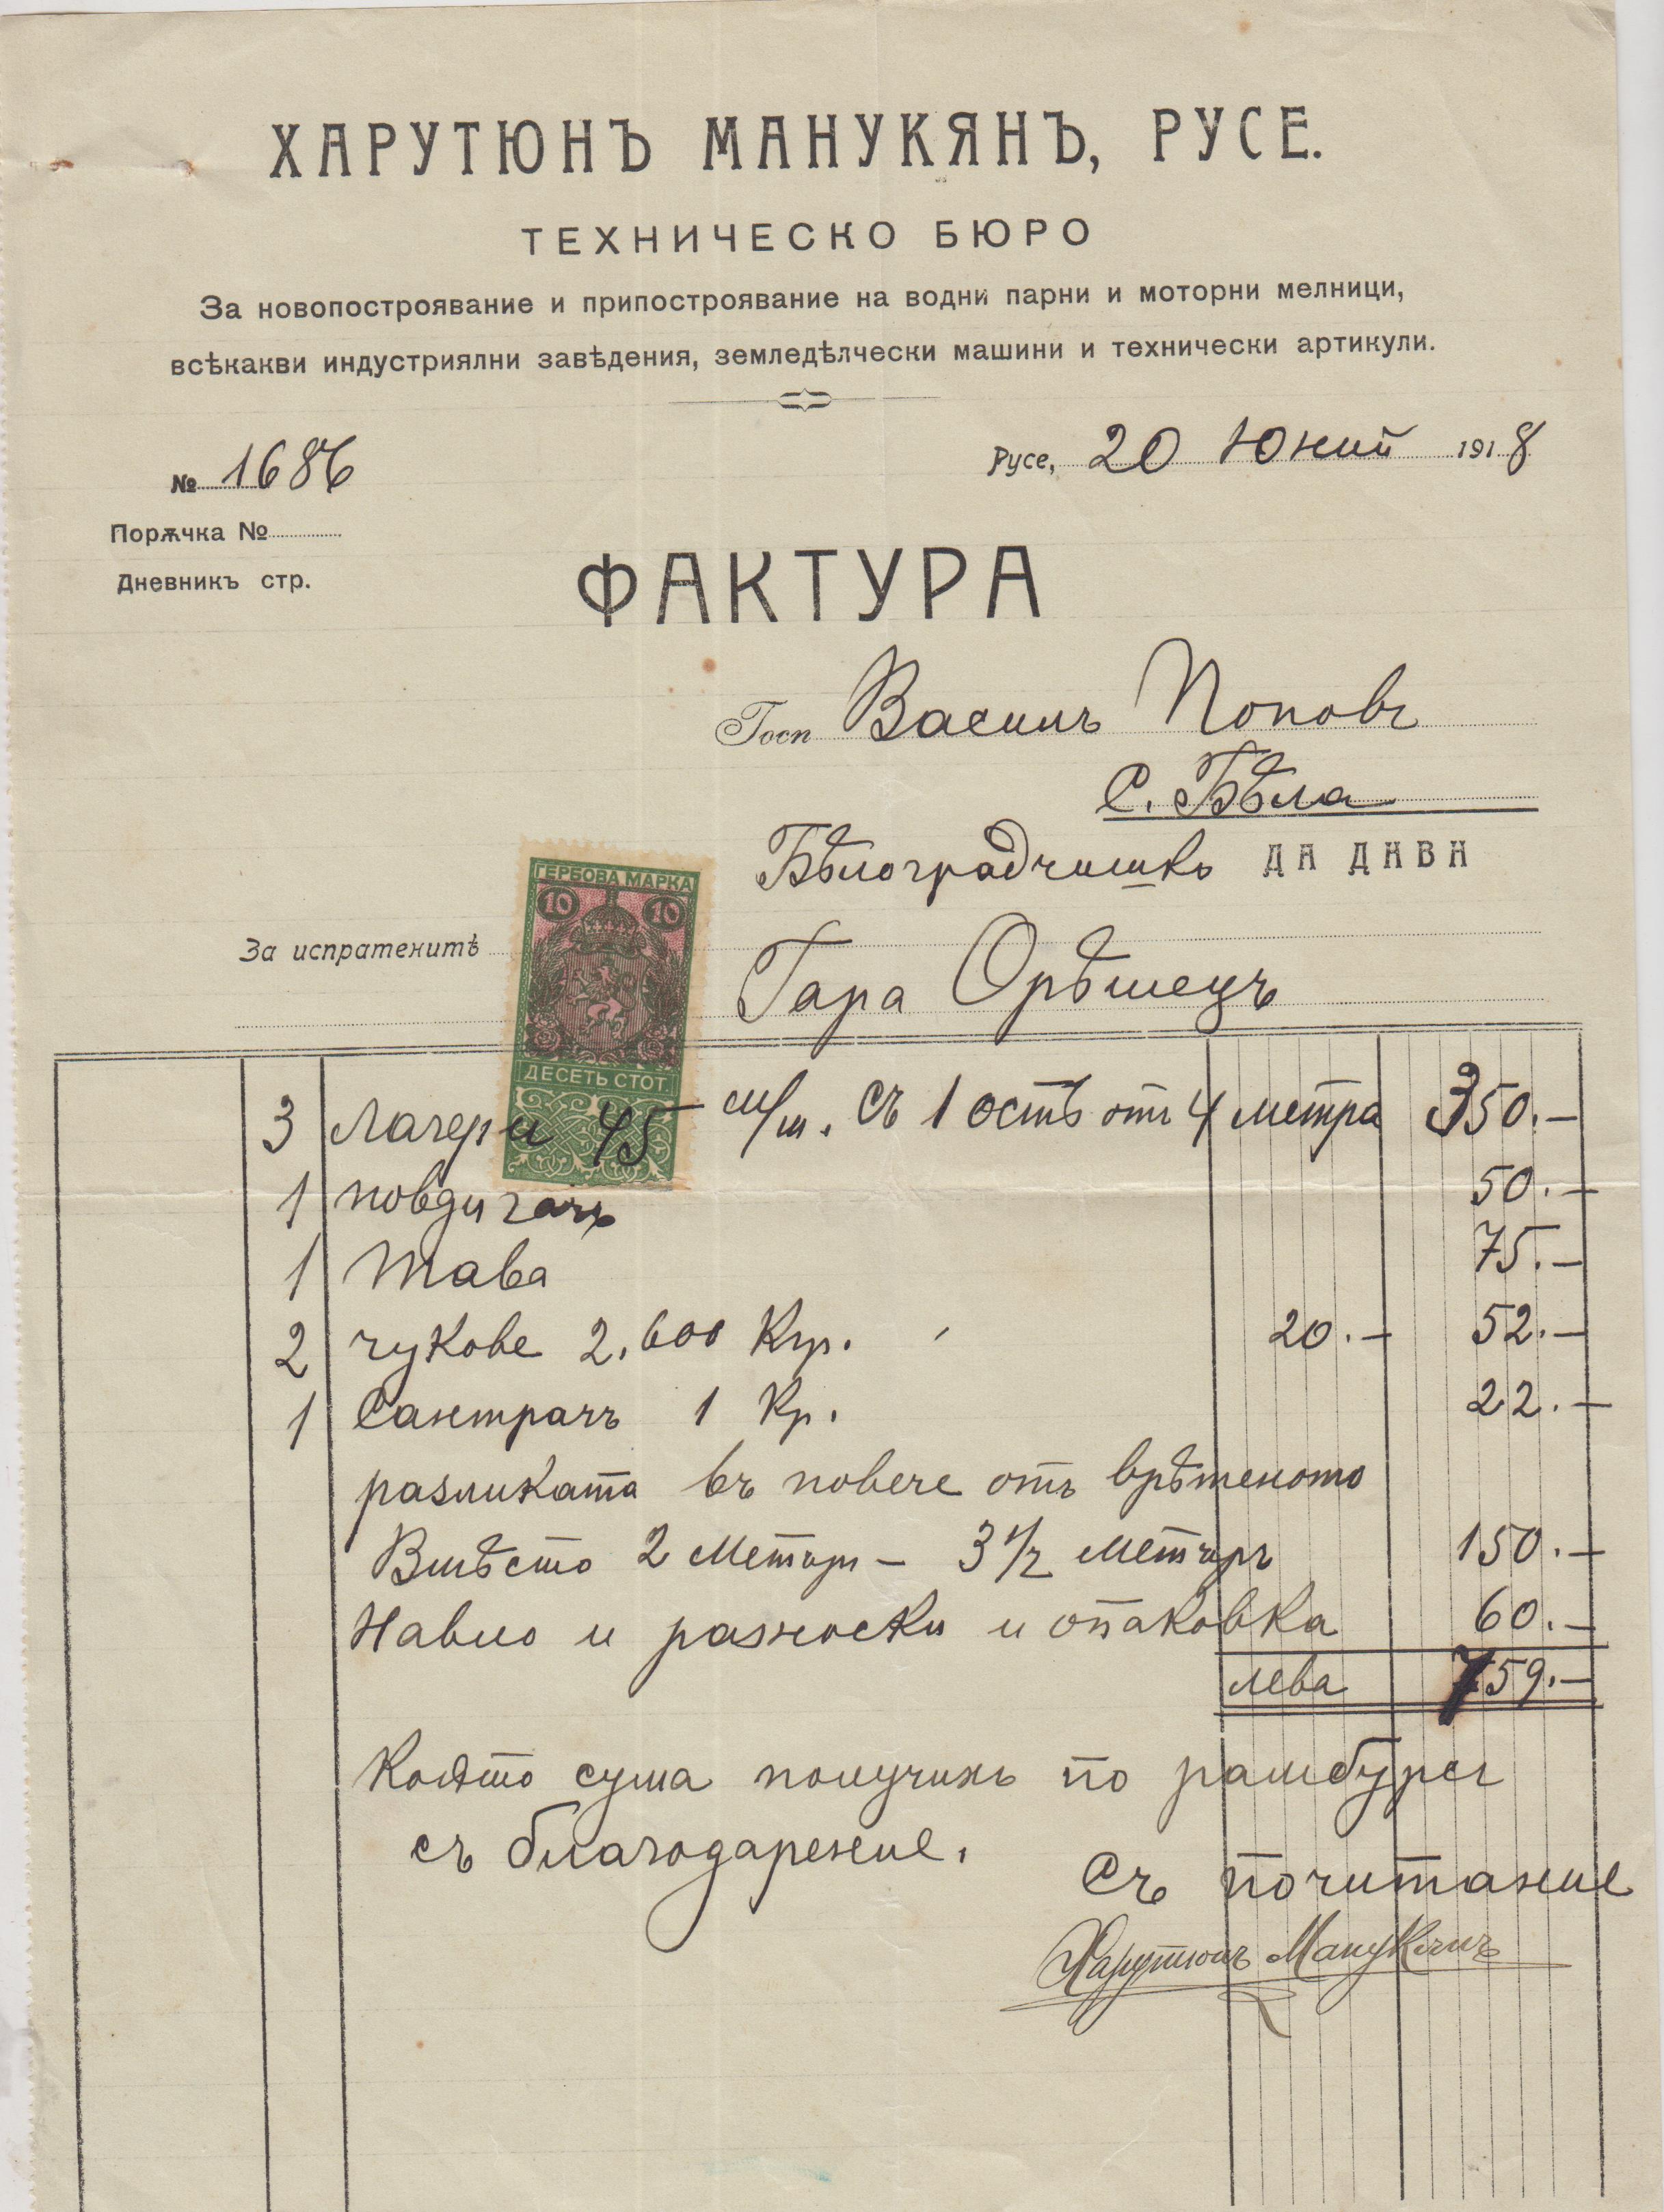 ХАРУТЮНЪ МАНУКЯНЪ, РУСЕ.
ТЕХНИЧЕСКО БЮРО
За новопострояване и припострояване на водни парни и моторни мелници,
всѣкакви индустриялни завѣдения, земледѣлчески машини и технически артикули.
№ 1686
Русе, 20 Юний 1918
Порѫчка №
Дневникъ стр.
ФАКТУРА
Госп Василъ Поповъ
с. Бѣла
Бѣлоградчишко ДА ДАВА
ГЕРБОВА МАРКА
10 10
За испратенитѣ
Гара Орѣшецъ
ДЕСЕТЬ СТОТ.
3 Лагери 45 м/м. съ 1 ость отъ 4 метра 350.—
1 повдигачъ 50.—
1 Тава 75.—
2 чукове 2.600 Кгр. 20.— 52.—
1 Сантрачъ 1 Кг. 22.—
разликата въ повече отъ врѣтеното
Вмѣсто 2 Метъра — 3 1/2 метъръ 150.—
Навло и разноски и опаковка 60.—
лева 759.—
Която сума получихъ по рамбурсъ
съ благодарение.
Съ почитание
Харутюнъ Манукянъ